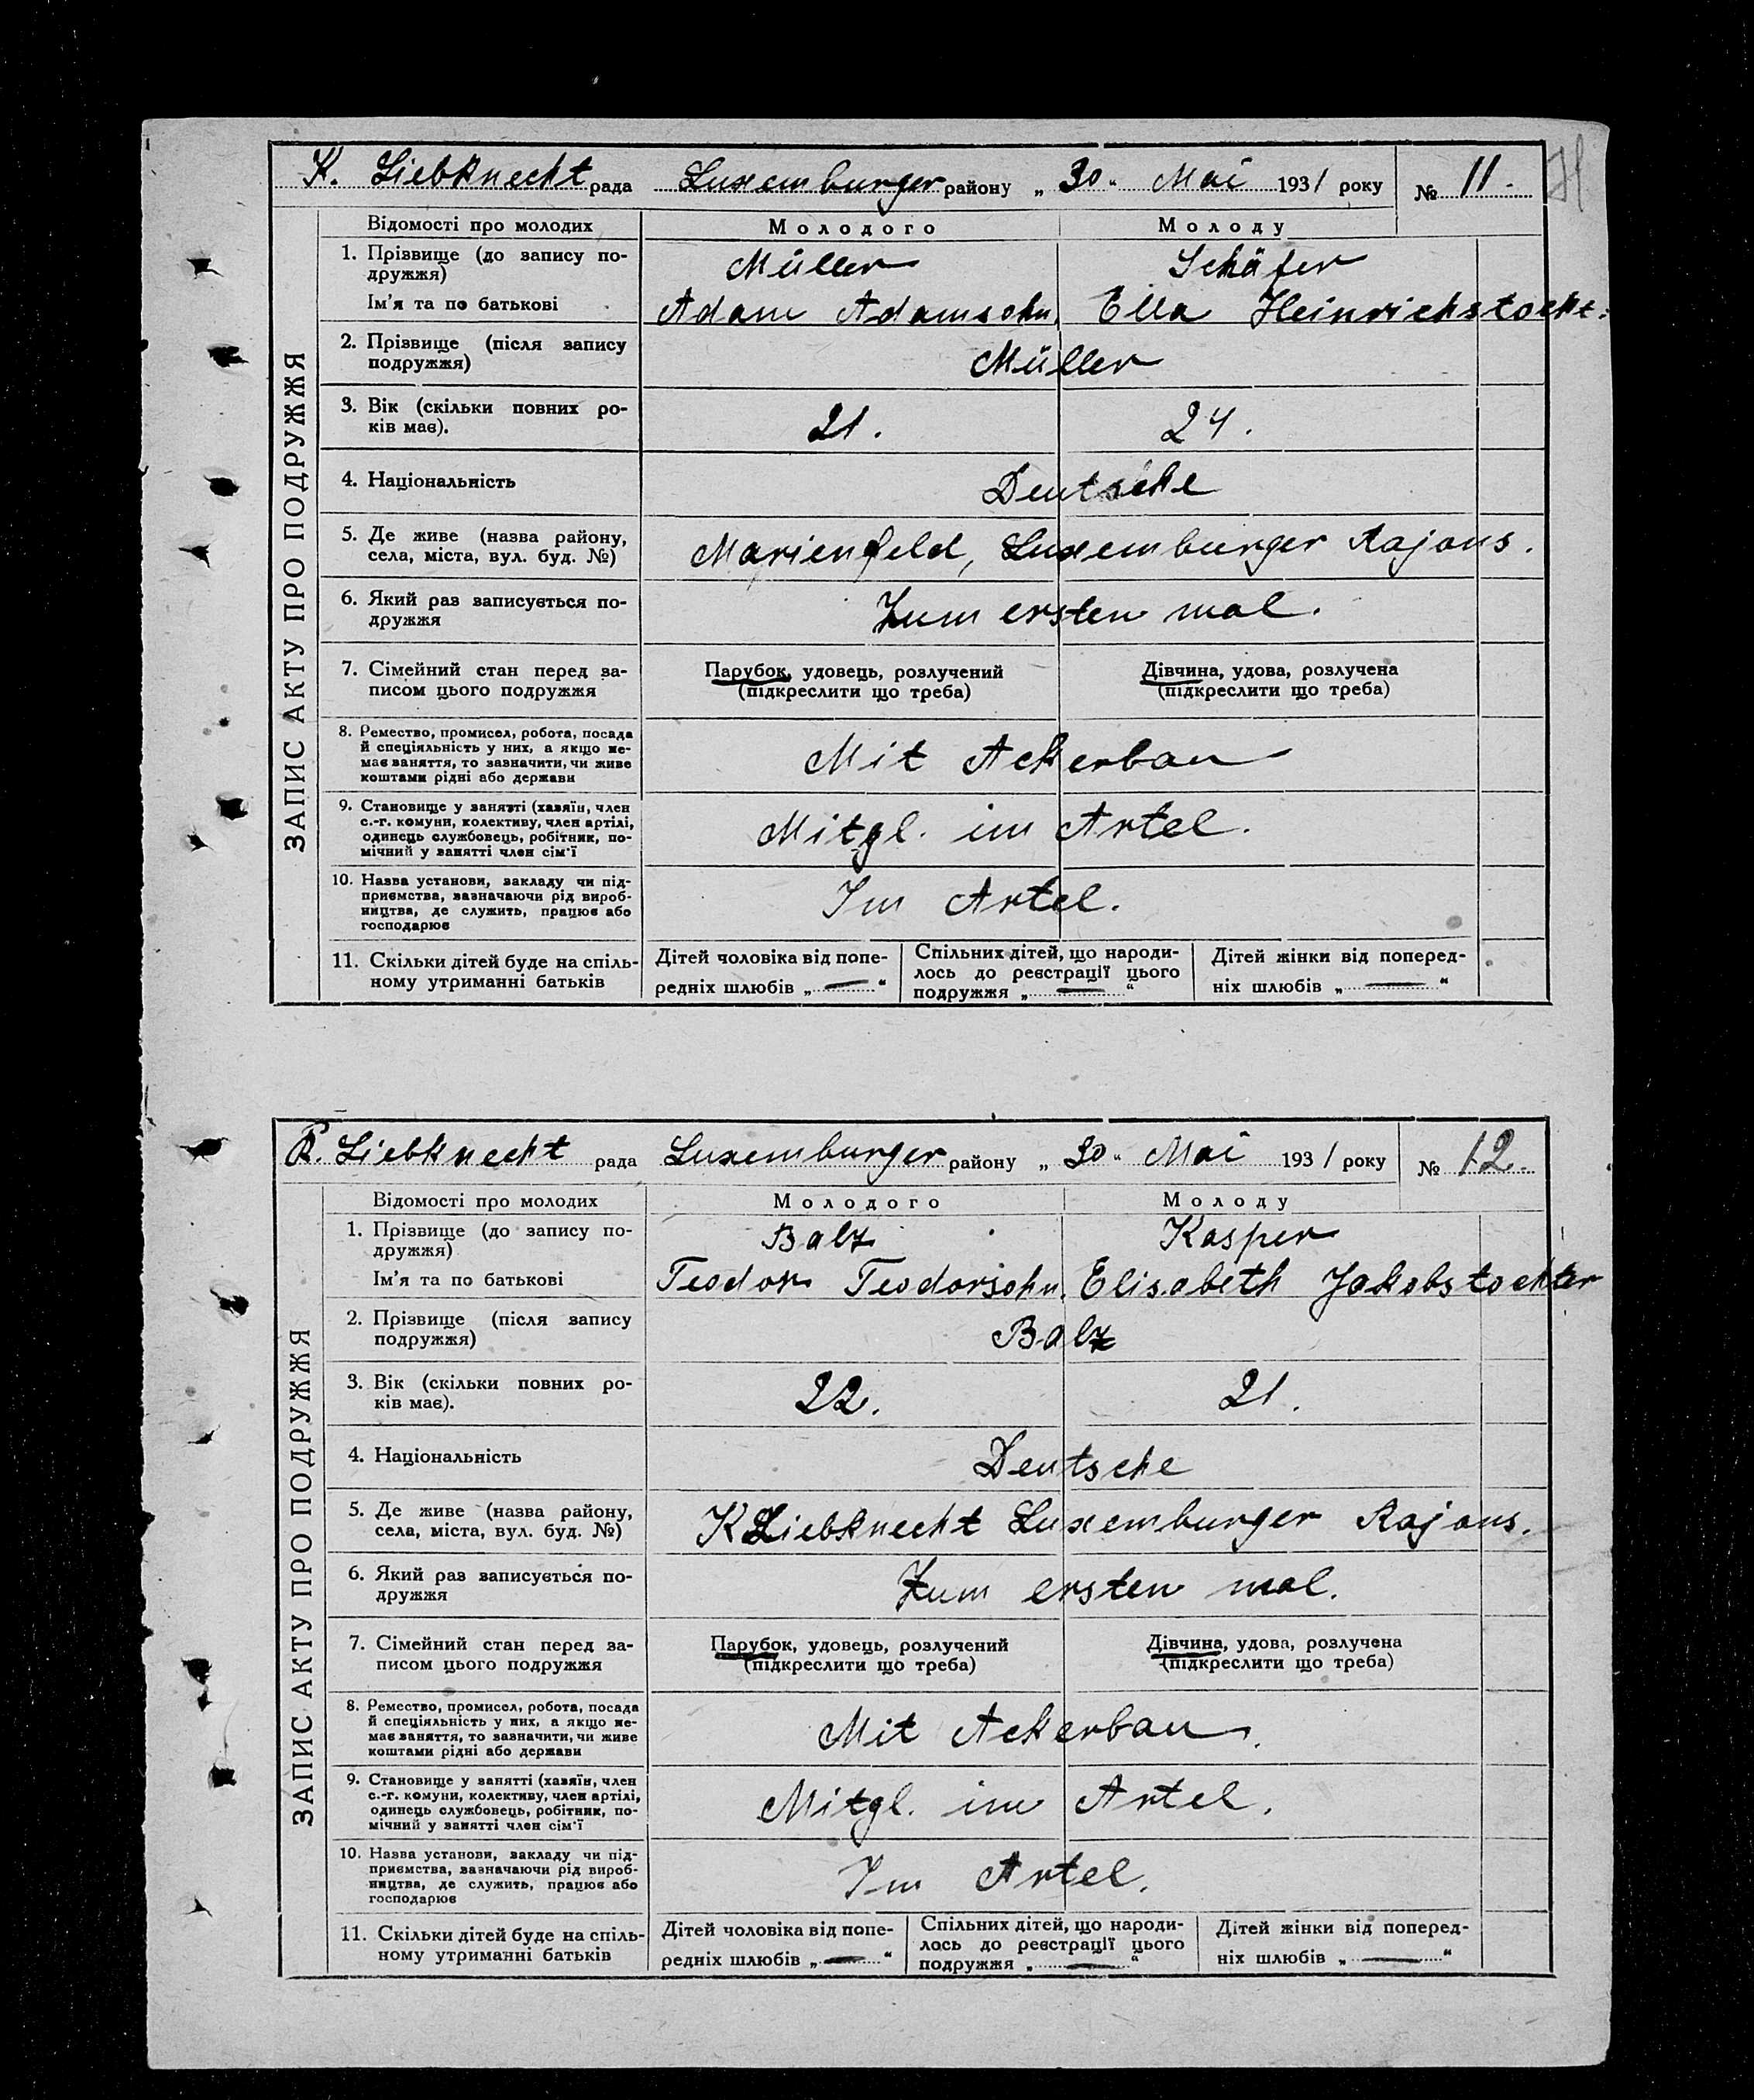 K. Liebknecht рада Luxemburger району „ 30 “ Mai 1931 року № 11.
ЗАПИС АКТУ ПРО ПОДРУЖЖЯ
Відомості про молодих Молодого Молоду
1. Прізвище (до запису по-
дружжя) Müller Schäfer
Ім’я та по батькові Adam Adamsohn, Ella Heinrichstocht:
2. Прізвище (після запису
подружжя) Müller
3. Вік (скільки повних ро-
ків має). 21. 24.
4. Національність Deutsche
5. Де живе (назва району,
села, міста, вул. буд. №) Marienfeld, Luxemburger Rajons.
6. Який раз записується по-
дружжя Zum ersten mal.
7. Сімейний стан перед за-
писом цього подружжя
Парубок, удовець, розлучений
(підкреслити що треба)
Дівчина, удова, розлучена
(підкреслити що треба)
8. Ремество, промисел, робота, посада
й спеціяльність у них, а якщо не-
має заняття, то зазначити, чи живе
коштами рідні або держави
Mit Ackerbau
9. Становище у занятті (хазяїн, член
с.-г. комуни, колективу, член артілі,
одинець службовець, робітник, по-
мічний у занятті член сім’ї
Mitgl. im Artel.
10. Назва установи, закладу чи під-
приємства, зазначаючи рід вироб-
ництва, де служить, працює або
господарює
Im Artel.
11. Скільки дітей буде на спіль-
ному утриманні батьків
Дітей чоловіка від попе-
редніх шлюбів „ — “
Спільних дітей, що народи-
лось до реєстрації цього
подружжя „ — “
Дітей жінки від поперед-
ніх шлюбів „ — “
K. Liebknecht рада Luxemburger району „ 30 “ Mai 1931 року № 12.
ЗАПИС АКТУ ПРО ПОДРУЖЖЯ
Відомості про молодих Молодого Молоду
1. Прізвище (до запису по-
дружжя) Balz Kasper
Ім’я та по батькові Teodor Teodorsohn, Elisabeth Jakobstochter
2. Прізвище (після запису
подружжя) Balz
3. Вік (скільки повних ро-
ків має). 22. 21.
4. Національність Deutsche
5. Де живе (назва району,
села, міста, вул. буд. №) K Liebknecht Luxemburger Rajons.
6. Який раз записується по-
дружжя Zum ersten mal.
7. Сімейний стан перед за-
писом цього подружжя
Парубок, удовець, розлучений
(підкреслити що треба)
Дівчина, удова, розлучена
(підкреслити що треба)
8. Ремество, промисел, робота, посада
й спеціяльність у них, а якщо не-
має заняття, то зазначити, чи живе
коштами рідні або держави
Mit Ackerbau.
9. Становище у занятті (хазяїн, член
с.-г. комуни, колективу, член артілі,
одинець службовець, робітник, по-
мічний у занятті член сім’ї
Mitgl. im Artel.
10. Назва установи, закладу чи під-
приємства, зазначаючи рід вироб-
ництва, де служить, працює або
господарює
Im Artel.
11. Скільки дітей буде на спіль-
ному утриманні батьків
Дітей чоловіка від попе-
редніх шлюбів „ — “
Спільних дітей, що народи-
лось до реєстрації цього
подружжя „ — “
Дітей жінки від поперед-
ніх шлюбів „ — “